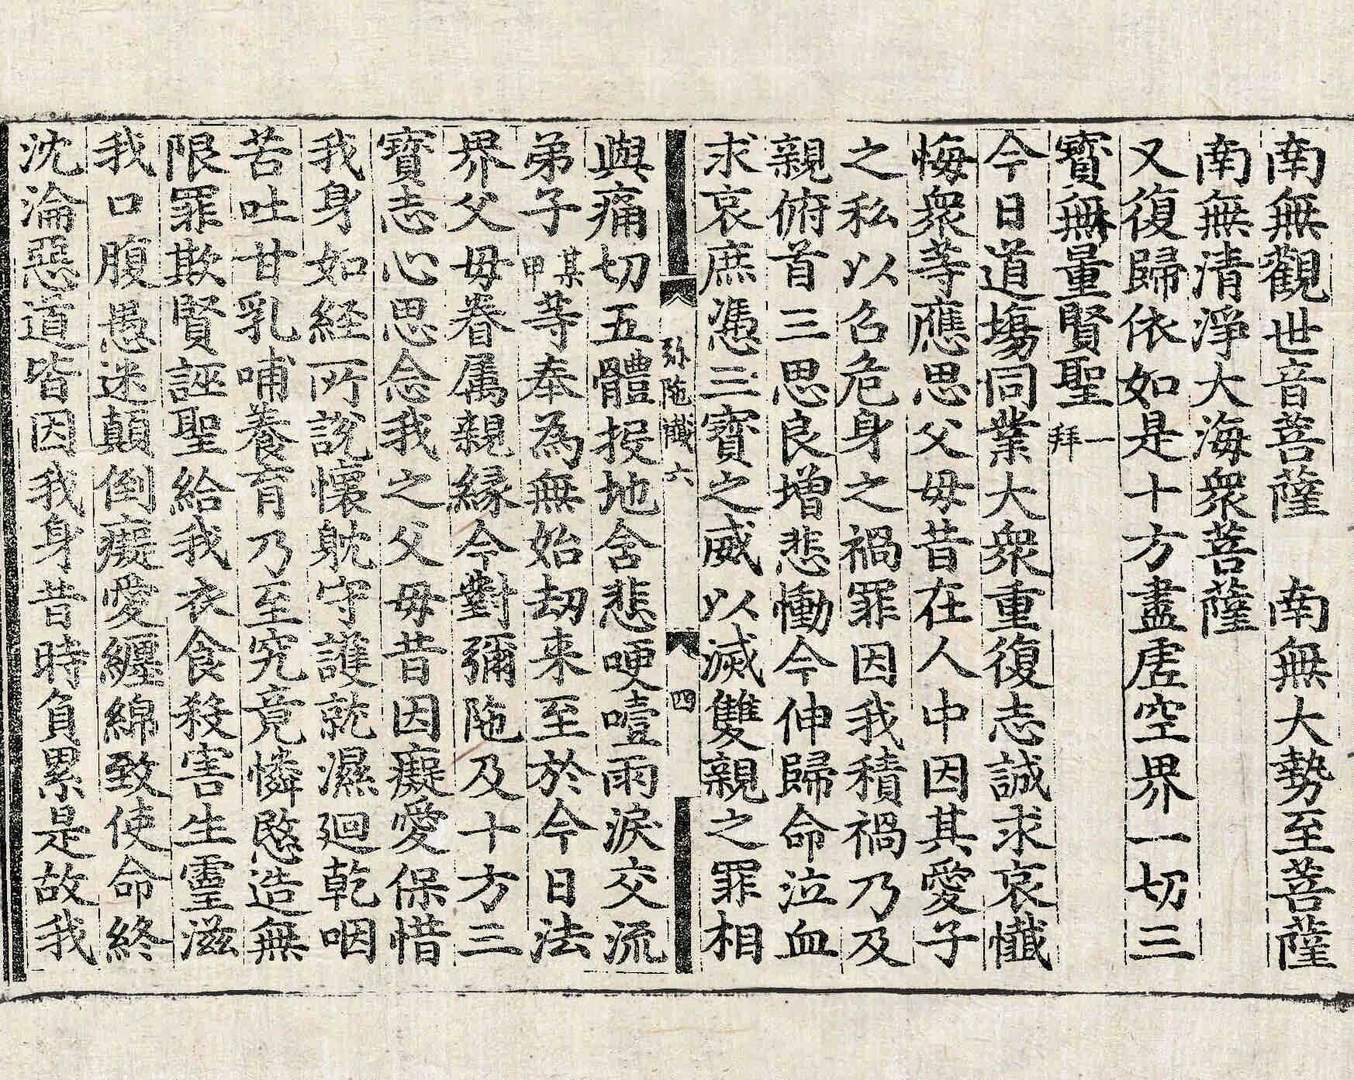 南無觀世音菩薩　南無大勢至菩薩
南無清淨大海衆菩薩
又復歸依如是十方盡虛空界一切三
寶無量賢聖 一拜
今日道場同業大衆重復志誠求哀懺
悔衆等應思父母昔在人中因其愛子
之私以召危身之禍罪因我積禍乃及
親俯首三思良增悲慟今伸歸命泣血
求哀庶憑三寶之威以滅雙親之罪相
弥陁懺六　四
與痛切五體投地含悲哽噎雨淚交流
弟子某甲等奉為無始劫来至於今日法
界父母眷属親緣今對彌陁及十方三
寶志心思念我之父母昔因癡愛保惜
我身如經所說懷躭守護就濕迴乾咽
苦吐甘乳哺養育乃至究竟憐愍造無
限罪欺賢誣聖給我衣食殺害生靈滋
我口腹愚迷顛倒癡愛纏綿致使命終
沈淪惡道皆因我身昔時負累是故我